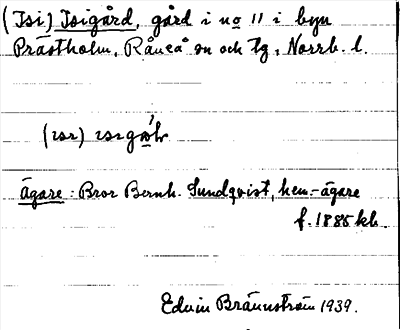 (Isi) Isigård, gård i no 11 i byn
Prästholm, Råneå sn och tg, Norrb. l.
Ägare: Bror Bernh. Sundqvist, hem.-ägare
f. 1885 kb.
Edvin Brännström 1939.